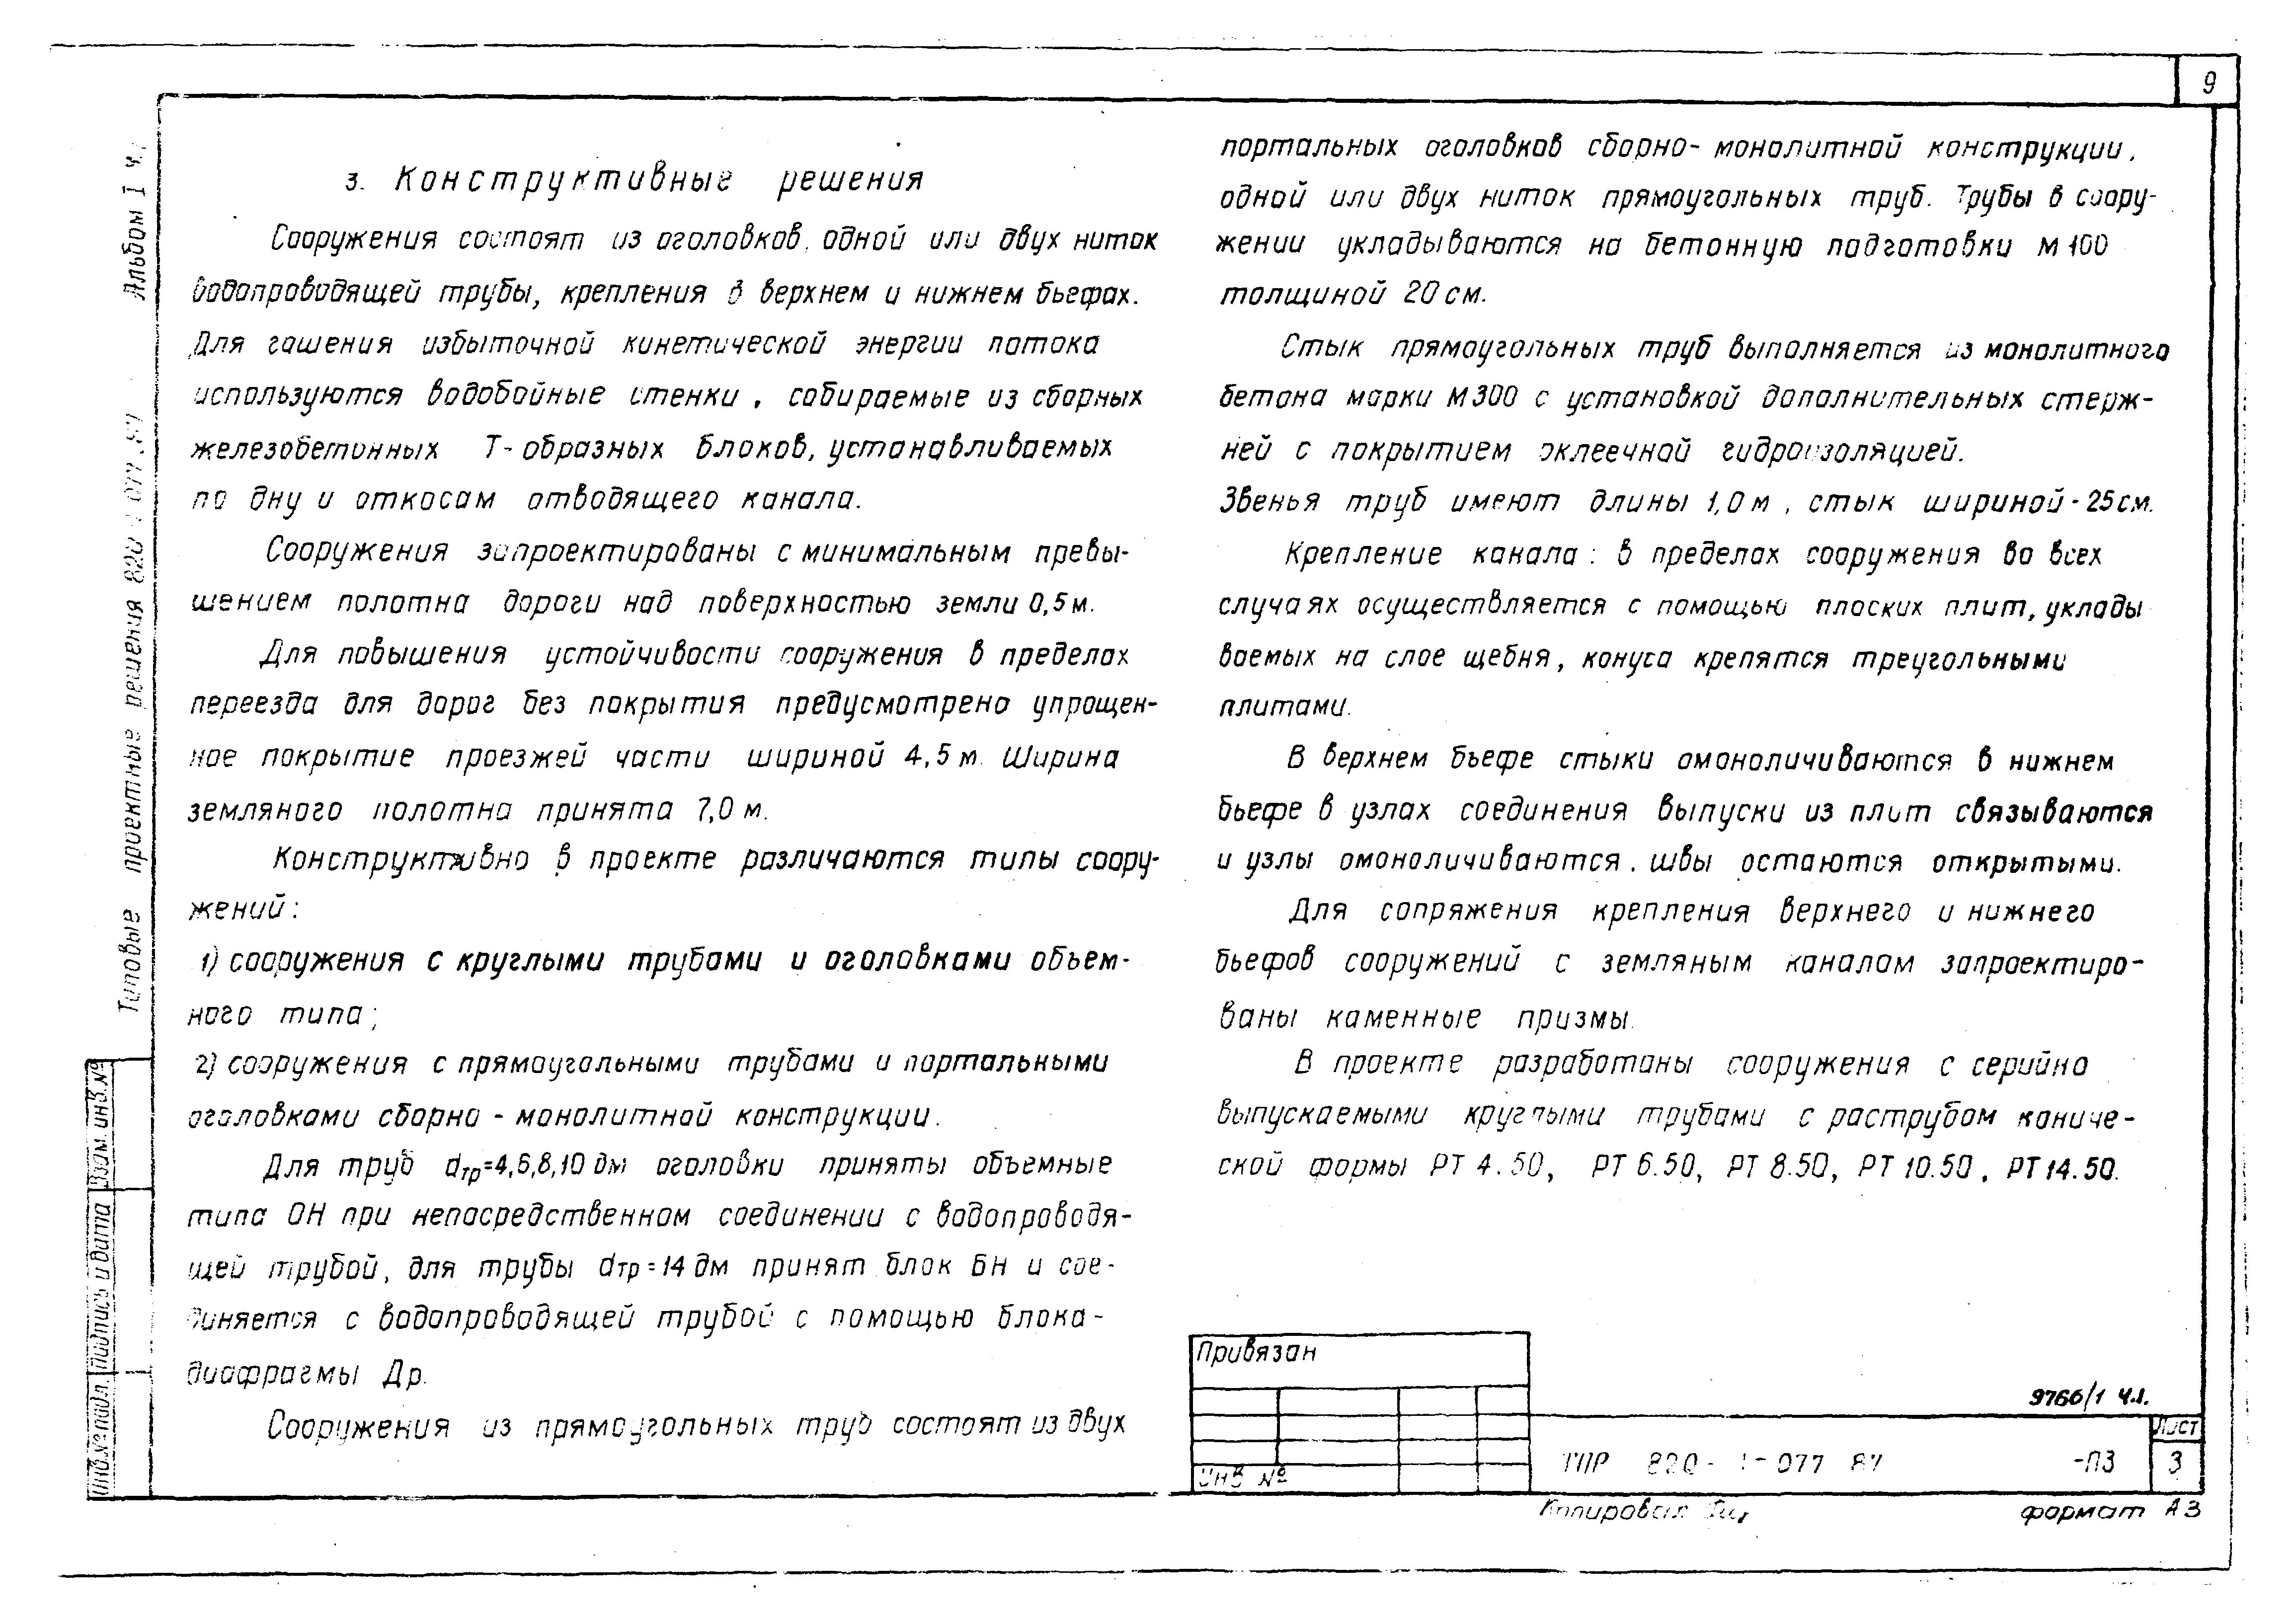 9
3. Конструктивные решения
Сооружения состоят из оголовков, одной или двух ниток
водопроводящей трубы, крепления в верхнем и нижнем бьефах.
Для гашения избыточной кинетической энергии потока
используются водобойные стенки, собираемые из сборных
железобетонных Т-образных блоков, устанавливаемых
по дну и откосам отводящего канала.
Сооружения запроектированы с минимальным превы-
шением полотна дороги над поверхностью земли 0,5 м.
Для повышения устойчивости сооружения в пределах
переезда для дорог без покрытия предусмотрено упрощен-
ное покрытие проезжей части шириной 4,5 м. Ширина
земляного полотна принята 7,0 м.
Конструктивно в проекте различаются типы соору-
жений:
1) сооружения с круглыми трубами и оголовками объем-
ного типа;
2) сооружения с прямоугольными трубами и портальными
оголовками сборно-монолитной конструкции.
Для труб dтр=4,6,8,10 дм оголовки приняты объемные
типа ОН при непосредственном соединении с водопроводя-
щей трубой, для трубы dтр=14 дм принят блок БН и сое-
диняется с водопроводящей трубой с помощью блока-
диафрагмы Др.
Сооружения из прямоугольных труб состоят из двух
портальных оголовков сборно-монолитной конструкции,
одной или двух ниток прямоугольных труб. Трубы в соору-
жении укладываются на бетонную подготовки М100
толщиной 20 см.
Стык прямоугольных труб выполняется из монолитного
бетона марки М300 с установкой дополнительных стерж-
ней с покрытием оклеечной гидроизоляцией.
Звенья труб имеют длины 1,0 м, стык шириной - 25 см.
Крепление канала: в пределах сооружения во всех
случаях осуществляется с помощью плоских плит, уклады
ваемых на слое щебня, конуса крепятся треугольными
плитами.
В верхнем бьефе стыки омоноличиваются в нижнем
бьефе в узлах соединения выпуски из плит связываются
и узлы омоноличиваются. швы остаются открытыми.
Для сопряжения крепления верхнего и нижнего
бьефов сооружений с земляным каналом запроектиро-
ваны каменные призмы.
В проекте разработаны сооружения с серийно
выпускаемыми круглыми трубами с раструбом кониче-
ской формы РТ 4.50, РТ 6.50, РТ 8.50, РТ 10.50, РТ 14.50.
Альбом I ч.
Типовые проектные решения 820
Взам. инв. №
Подпись и дата
Инв. № подл.
Привязан
Инв №
9766/1 ч.1.
ТПР 820-1-077 87
-ПЗ
Лист
3
Копировал
формат А3